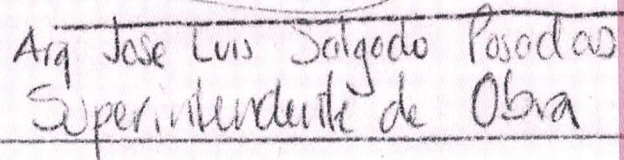 Arq Jose Luis Salgado Posadas
Superintendente de Obra